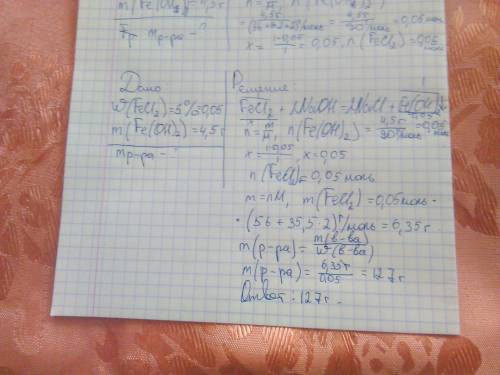 Fr mр-ра - ?
(56+(17·2)) г/моль = 90г/моль = 0,05 моль
x = 1·0,05/1 = 0,05, n(FeCl2) = 0,05 моль
Дано
w(FeCl2) = 5% = 0,05
m(Fe(OH)2) = 4,5 г
mр-ра - ?
Решение
FeCl2 + 2NaOH = 2NaCl + Fe(OH)2
n = m/M, n(Fe(OH)2) = 4,5г/90г/моль = 0,05 моль
x = 1·0,05/1, x = 0,05
n(FeCl2) = 0,05 моль
m = nM, m(FeCl2) = 0,05 моль ·
· (56 + 35,5·2) г/моль = 6,35 г
m(р-ра) = m(в-ва)/w(в-ва)
m(р-ра) = 6,35 г/0,05 = 127 г
Ответ: 127 г.